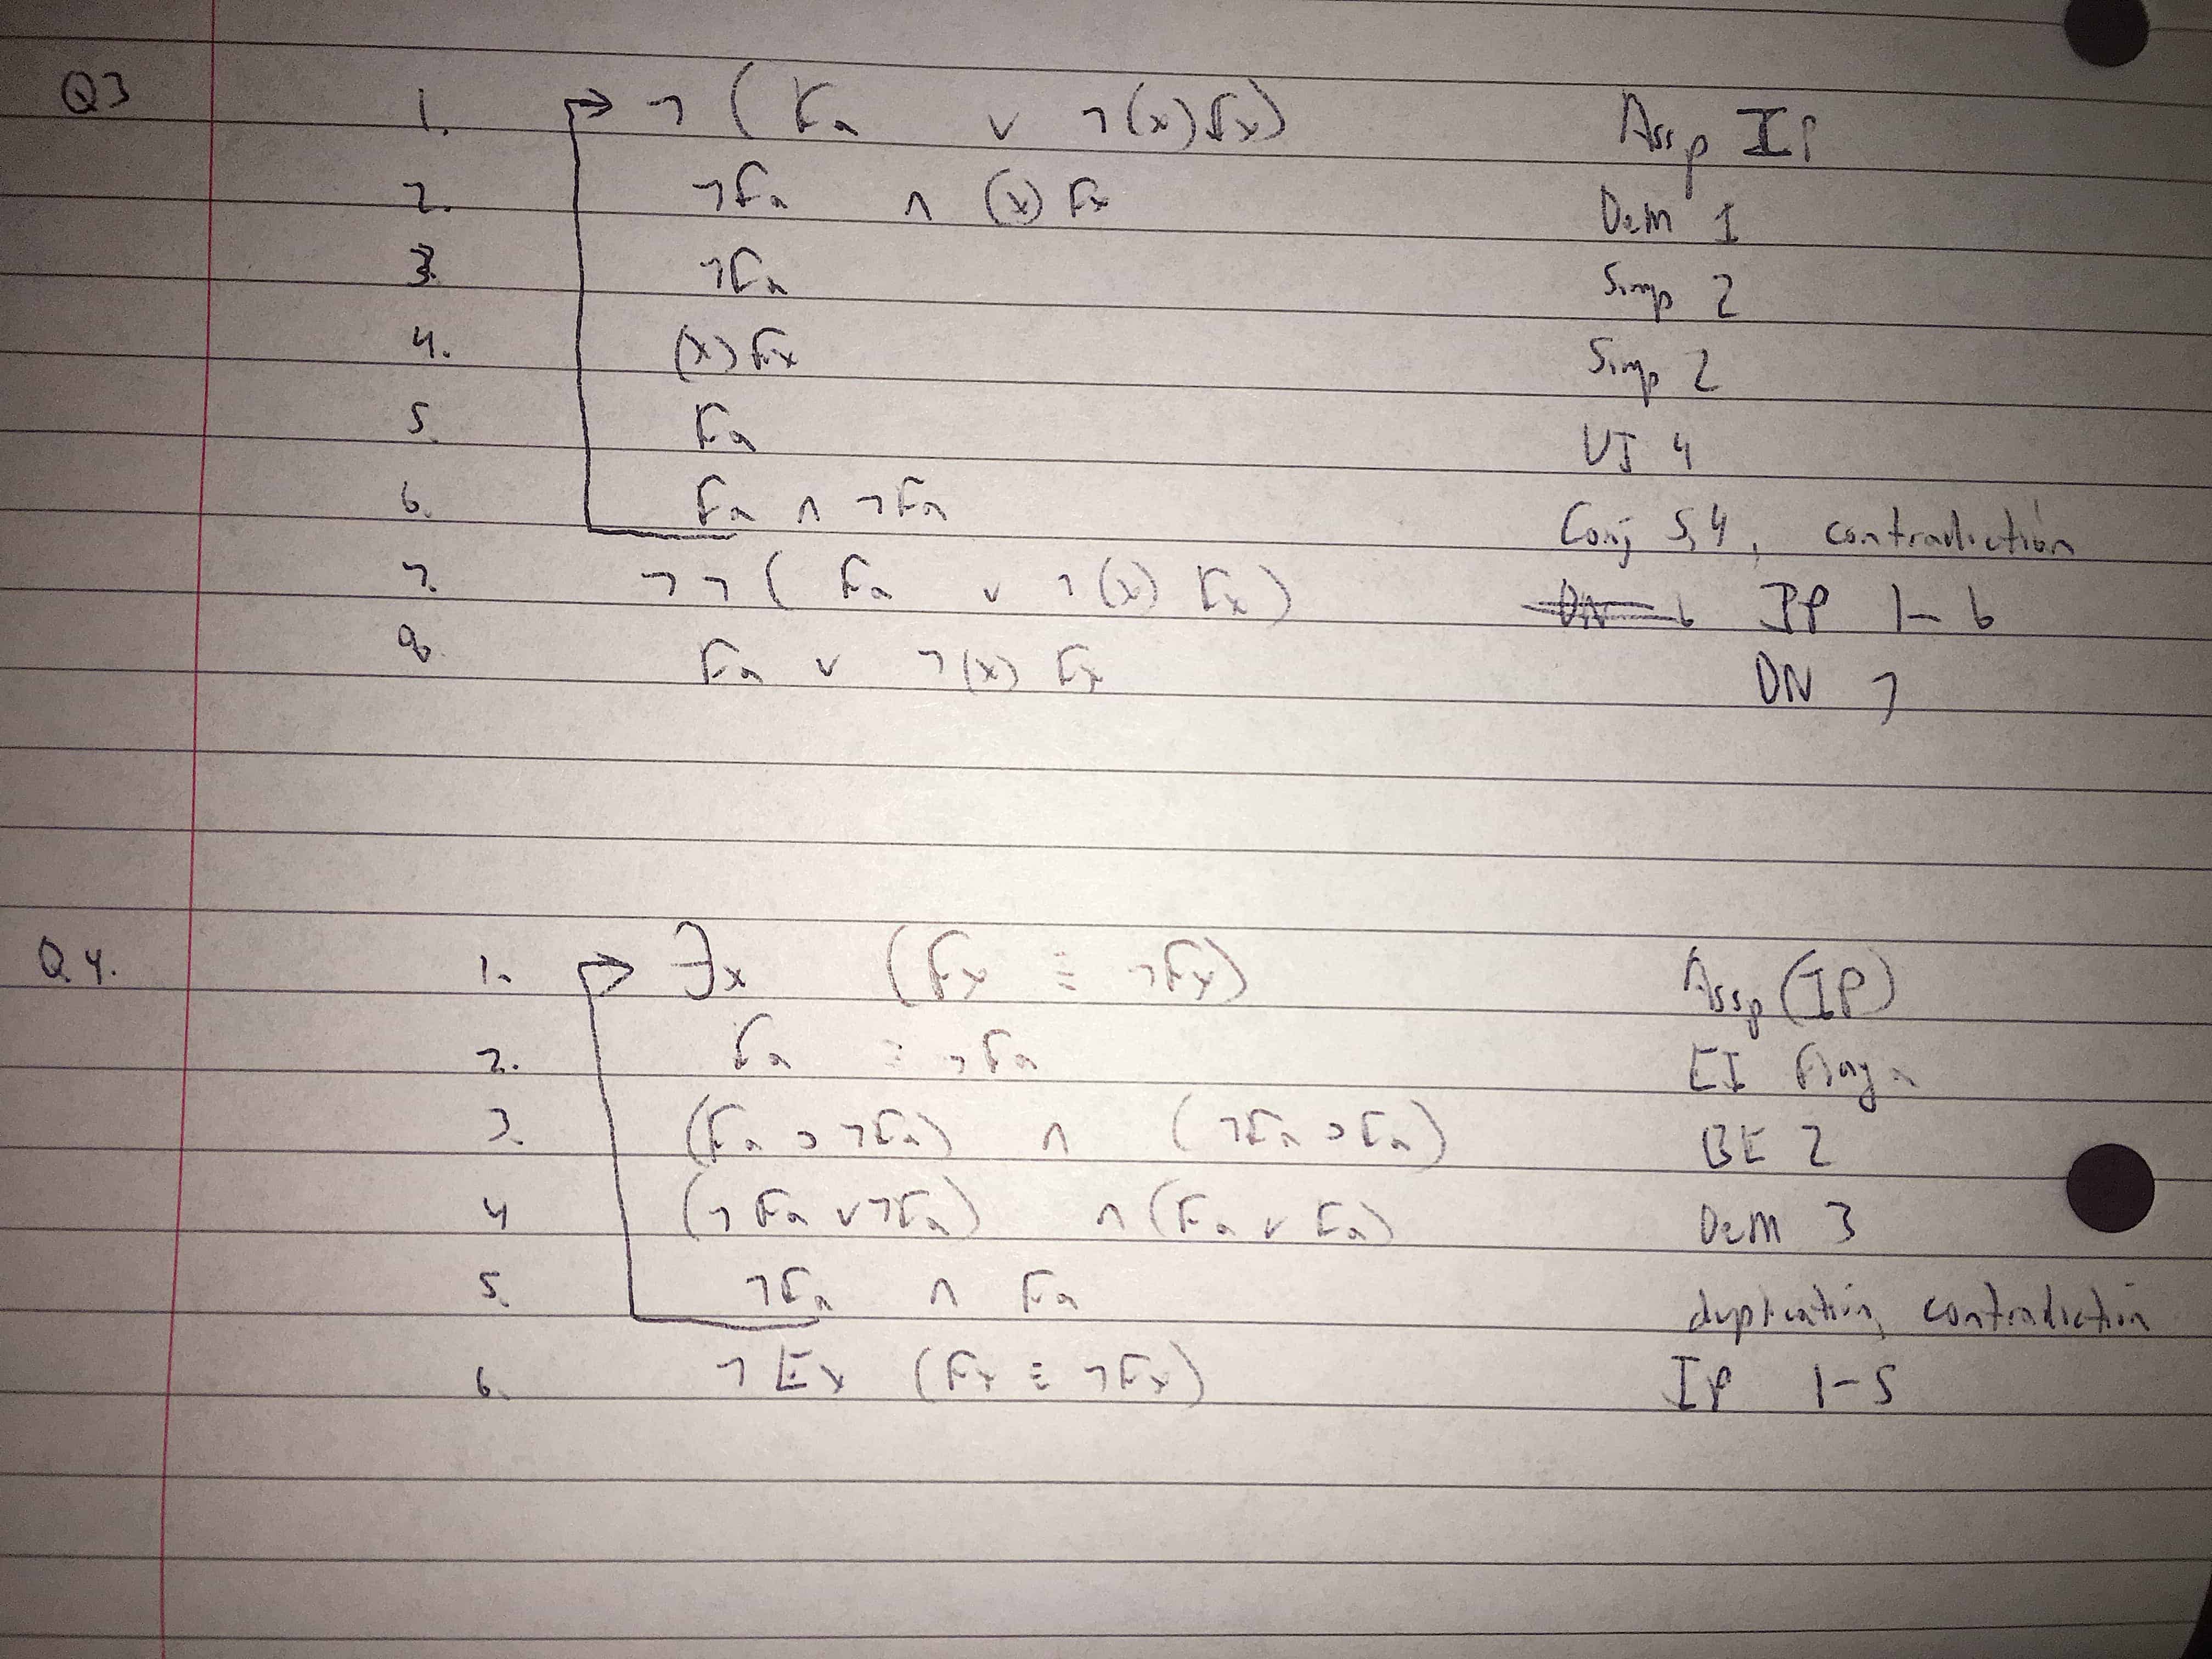 Q3 1. ¬ ( Fa ∨ ¬(x)Fx) Assp IP
2. ¬Fa ∧ (x) Fx DeM 1
3. ¬Fa Simp 2
4. (x) Fx Simp 2
5. Fa UI 4
6. Fa ∧ ¬Fa Conj 5,4, contradiction
7. ¬¬ ( Fa ∨ ¬(x) Fx ) IP 1-6
8. Fa ∨ ¬(x) Fx DN 7
Q4. 1. ∃x (Fx ≡ ¬Fx) Assp (IP)
2. Fa ≡ ¬Fa EI Flag a
3. (Fa ⊃ ¬Fa) ∧ (¬Fa ⊃ Fa) BE 2
4 (¬Fa ∨ ¬Fa) ∧ (Fa ∨ Fa) DeM 3
5. ¬Fa ∧ Fa duplication, contradiction
6. ¬Ex (Fx ≡ ¬Fx) IP 1-5